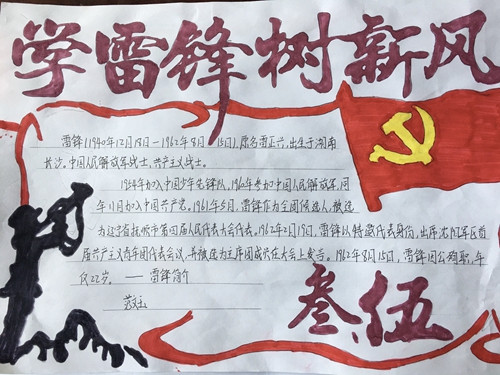 学雷锋树新风
雷锋(1940年12月18日-1962年8月15日),原名雷正兴,出生于湖南
长沙,中国人民解放军战士,共产主义战士。
1954年加入中国少年先锋队,1960年参加中国人民解放军,同
年11月加入中国共产党。1961年5月,雷锋作为全团候选人,被选
为辽宁省抚顺市第四届人民代表大会代表。1962年2月19日,雷锋以特邀代表身份,出席沈阳军区首
届共产主义青年团代表会议,并被选为主席团成员在大会上发言。1962年8月15日,雷锋因公殉职,年
仅22岁。——雷锋简介
叁.伍